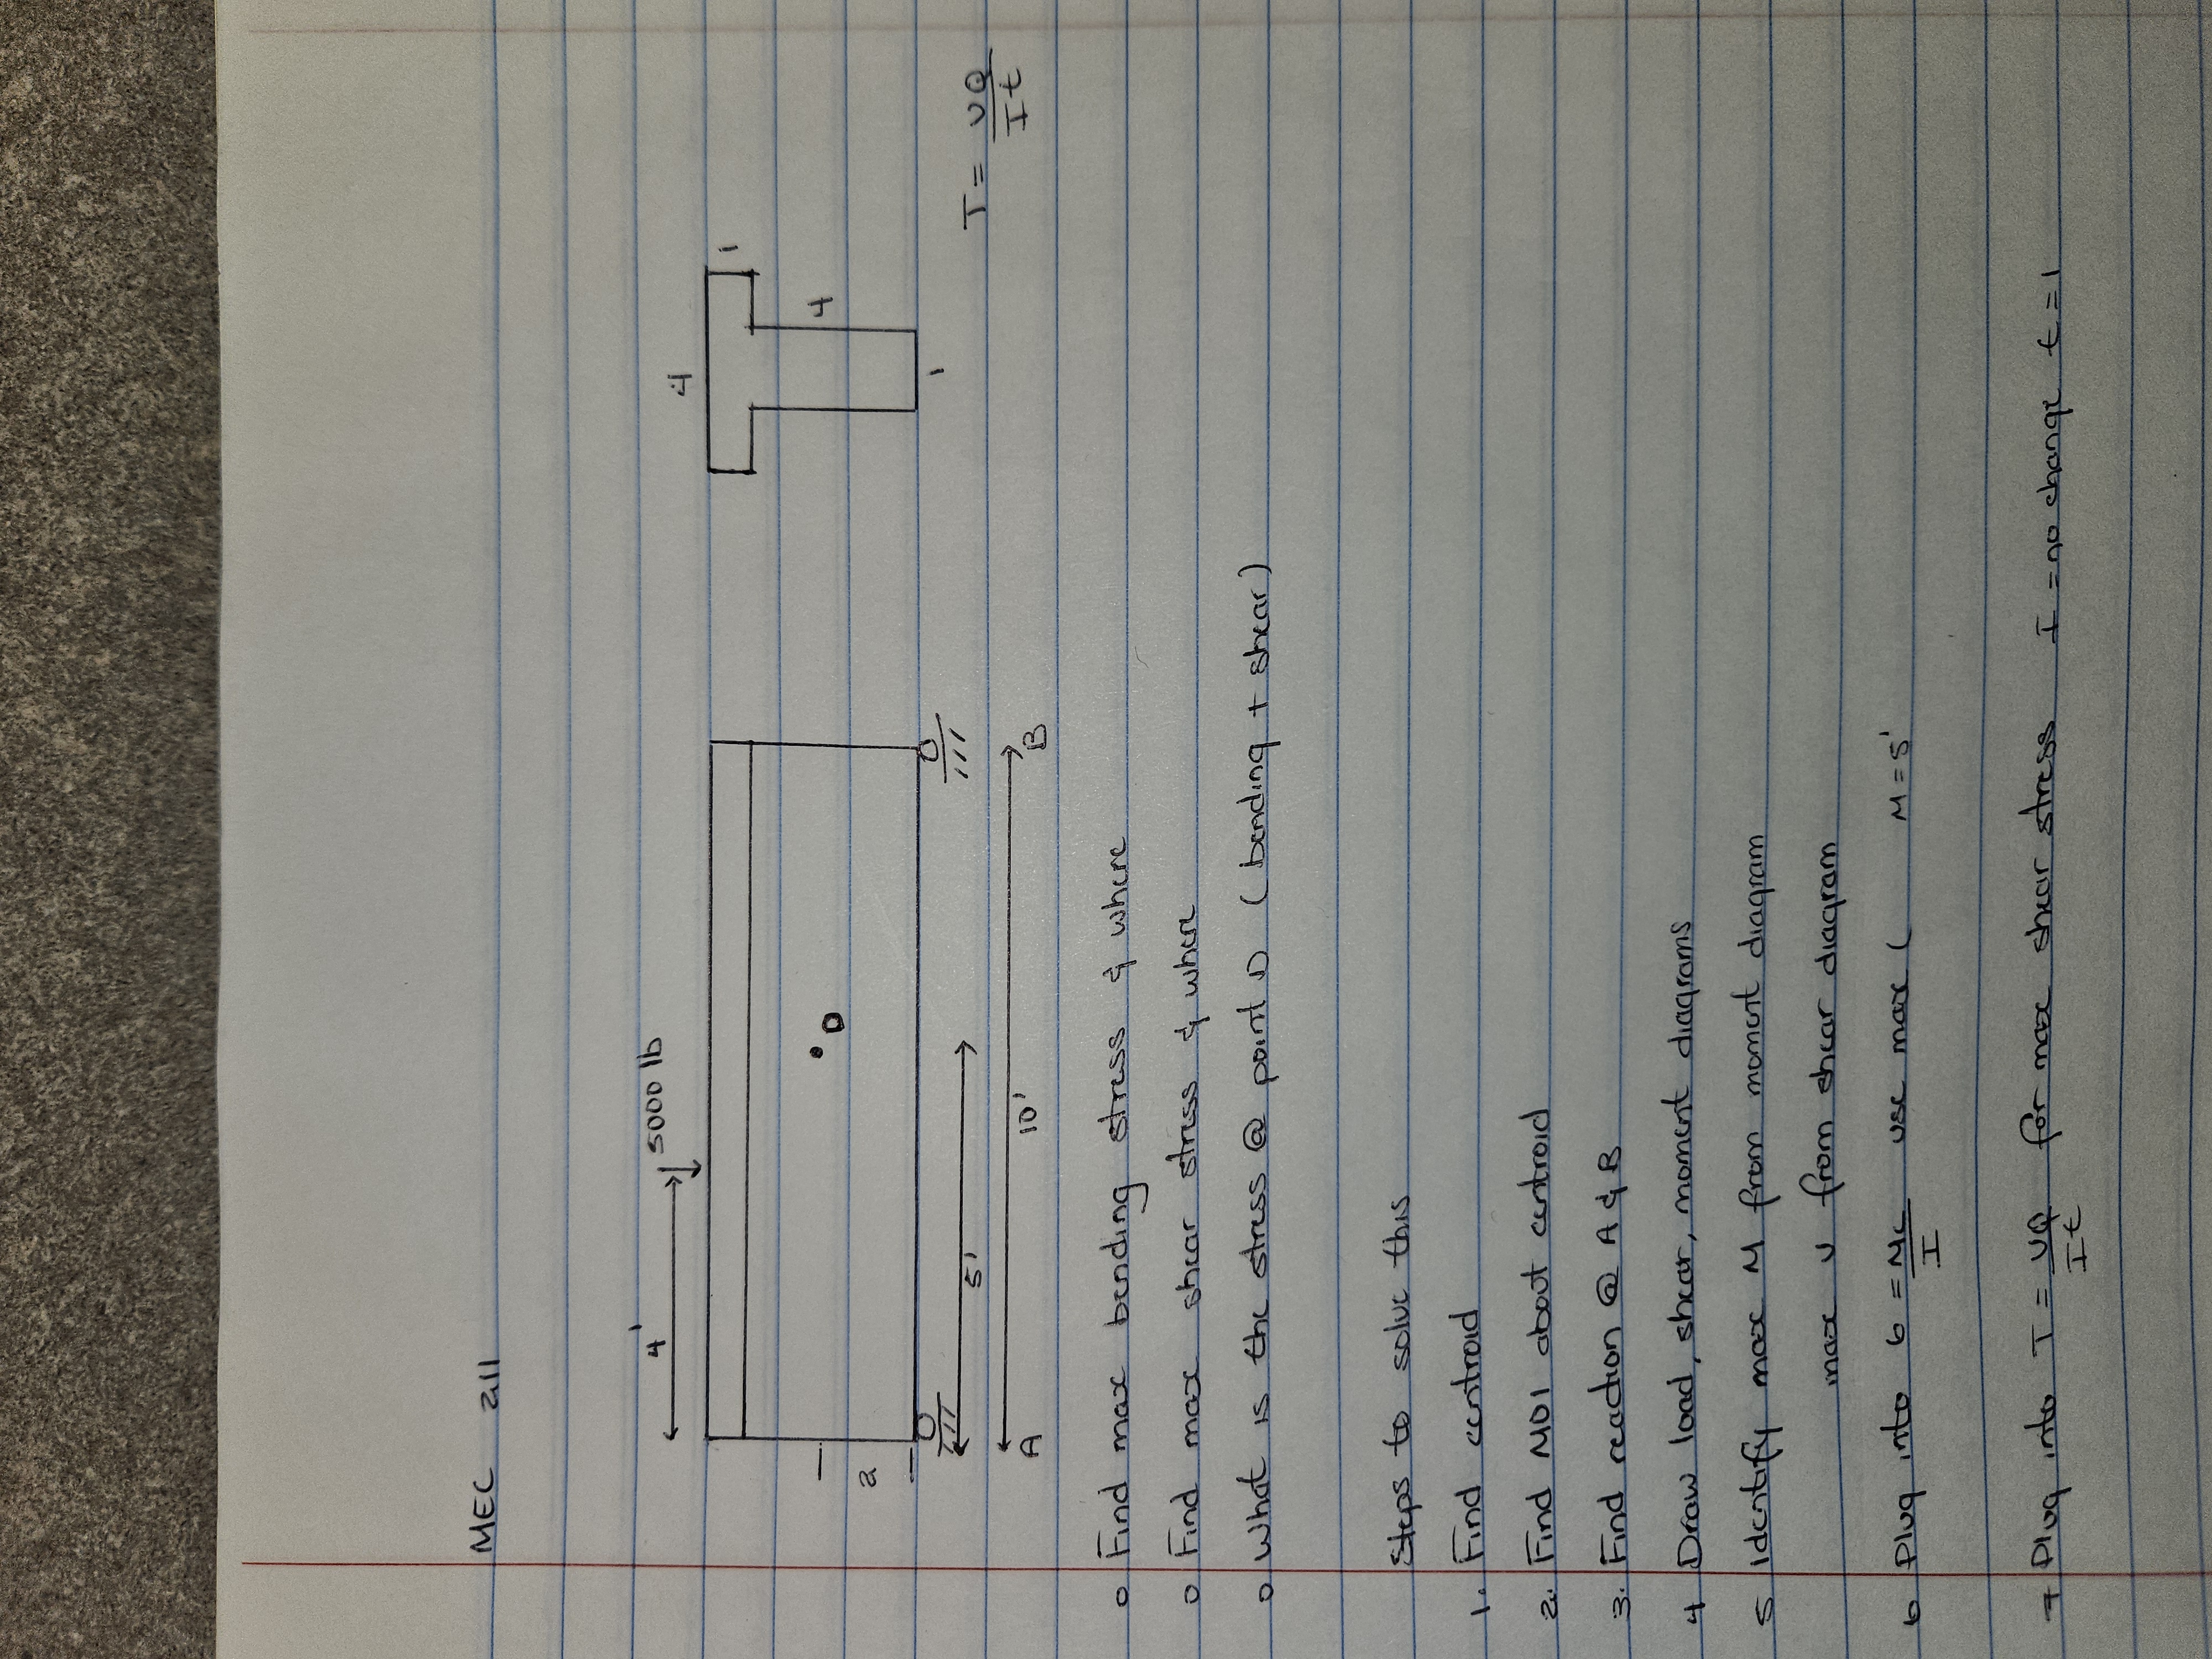 MEC 211
4'
5000 lb
4
1
2
•D
4
1
5'
T = VQ/It
10'
A
B
o Find max bending stress & where
o Find max shear stress & where
o What is the stress @ point D (bending + shear)
Steps to solve this
1. Find centroid
2. Find MOI about centroid
3. Find reaction @ A & B
4 Draw load, shear, moment diagrams
5 Identify max M from moment diagram
max V from shear diagram
6 Plug into 6 = Mc/I use max ( M = 5'
7 Plug into T = VQ/It for max shear stress I = no change t = 1